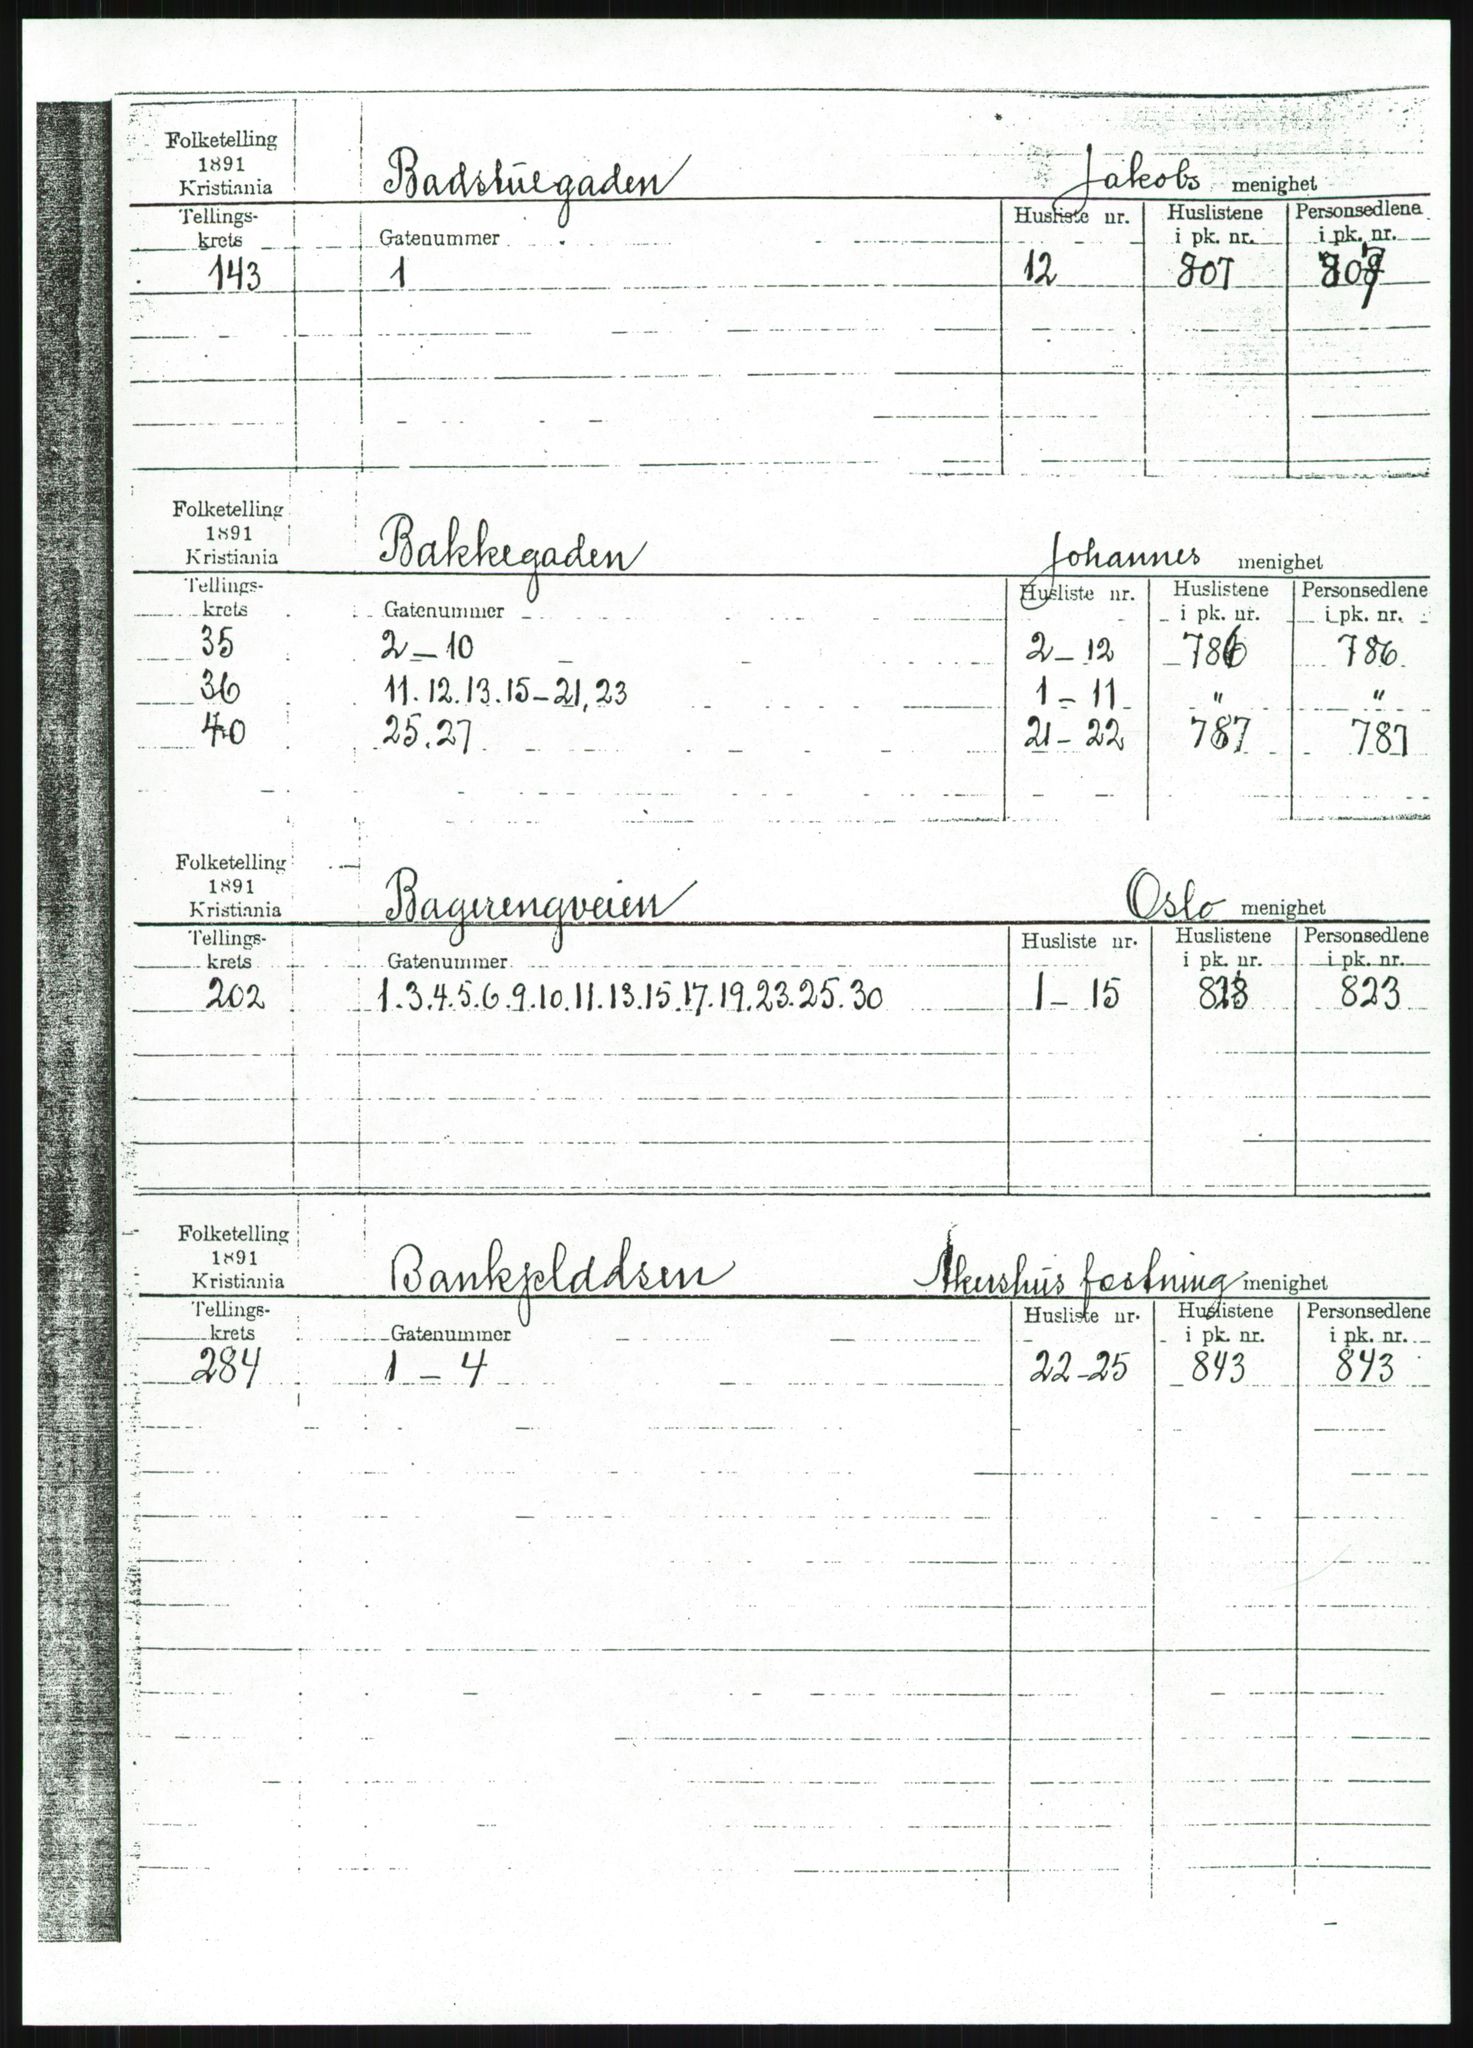 Folketelling
1891
Kristiania
Badstuegaden Jakobs menighet
Tellings-krets Gatenummer Husliste nr. Huslistene i pk. nr. Personsedlene i pk. nr.
143 1 12 807 807
Folketelling
1891
Kristiania
Bakkegaden Johannes menighet
Tellings-krets Gatenummer Husliste nr. Huslistene i pk. nr. Personsedlene i pk. nr.
35 2 – 10 2 – 12 786 786
36 11. 12. 13. 15 – 21, 23 1 – 11 " "
40 25. 27 21 – 22 787 787
Folketelling
1891
Kristiania
Bagerengveien Oslo menighet
Tellings-krets Gatenummer Husliste nr. Huslistene i pk. nr. Personsedlene i pk. nr.
202 1. 3. 4. 5. 6. 9. 10. 11. 13. 15. 17. 19. 23. 25. 30 1 – 15 823 823
Folketelling
1891
Kristiania
Akershus fæstning menighet
Tellings-krets Gatenummer Husliste nr. Huslistene i pk. nr. Personsedlene i pk. nr.
284 1 – 4 22 – 25 843 843